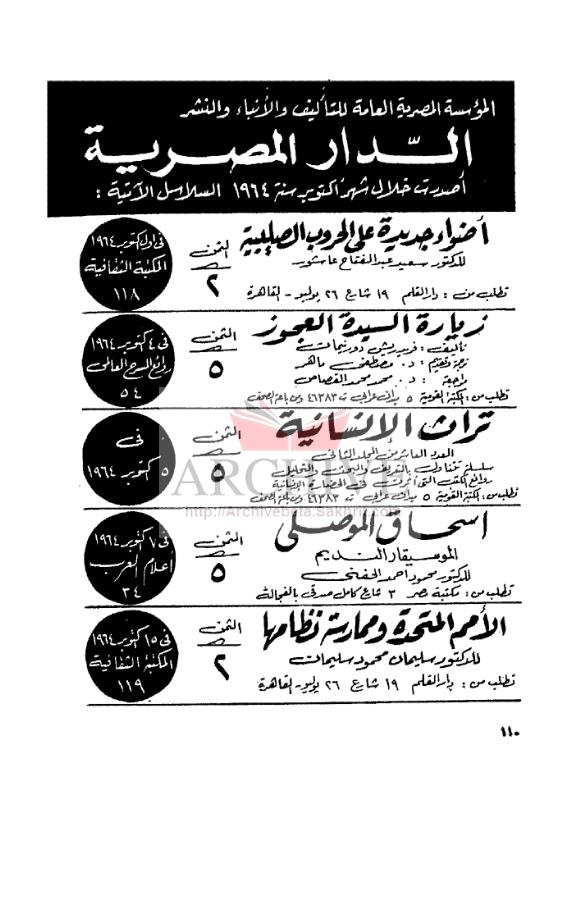 المؤسسة المصرية العامة للتأليف والأنباء والنشر
الدار المصرية
أصدرت خلال شهر أكتوبر سنة ١٩٦٤ السلاسل الآتية :
أضواء جديدة على الحروب الصليبية
للدكتور سعيد عبد الفتاح عاشور
تطلب من : دار القلم ١٩ شارع ٢٦ يوليو - القاهرة
الثمن
٢
فى أول أكتوبر ١٩٦٤
المكتبة الثقافية
١١٨
زيارة السيدة العجوز
تأليف : فريدريش دورنيمات
ترجمة وتقديم : د. مصطفى ماهر
مراجعة : د. محمد محمد القصاص
تطلب من : المكتبة القومية ٥ ميدان عرابى ت ٤٦٣٨٣ ومن باعة الصحف
الثمن
٥
فى ٤ أكتوبر ١٩٦٤
روائع المسرح العالمى
٥٤
تراث الإنسانية
العدد العاشر من المجلد الثانى
سلسلة تتناول بالتعريف والبحث والتحليل
روائع الكتب التى أثرت فى الحضارة الإنسانية
تطلب من : المكتبة القومية ٥ ميدان عرابى ت ٤٦٣٨٣ ومن باعة الصحف
الثمن
٥
فى
٥ أكتوبر ١٩٦٤
ARCHIVE
http://Archivebeta.Sakhrit.com
اسحاق الموصلى
الموسيقار النديم
للدكتور محمود أحمد الحفنى
تطلب من : مكتبة مصر ٣ شارع كامل صدقى بالفجالة
الثمن
٥
فى ٧ أكتوبر ١٩٦٤
أعلام العرب
٣٤
الأمم المتحدة وممارسة نظامها
للدكتور سليمان محمود سليمان
تطلب من : دار القلم ١٩ شارع ٢٦ يوليو - القاهرة
الثمن
٢
فى ١٥ أكتوبر ١٩٦٤
المكتبة الثقافية
١١٩
١١٠